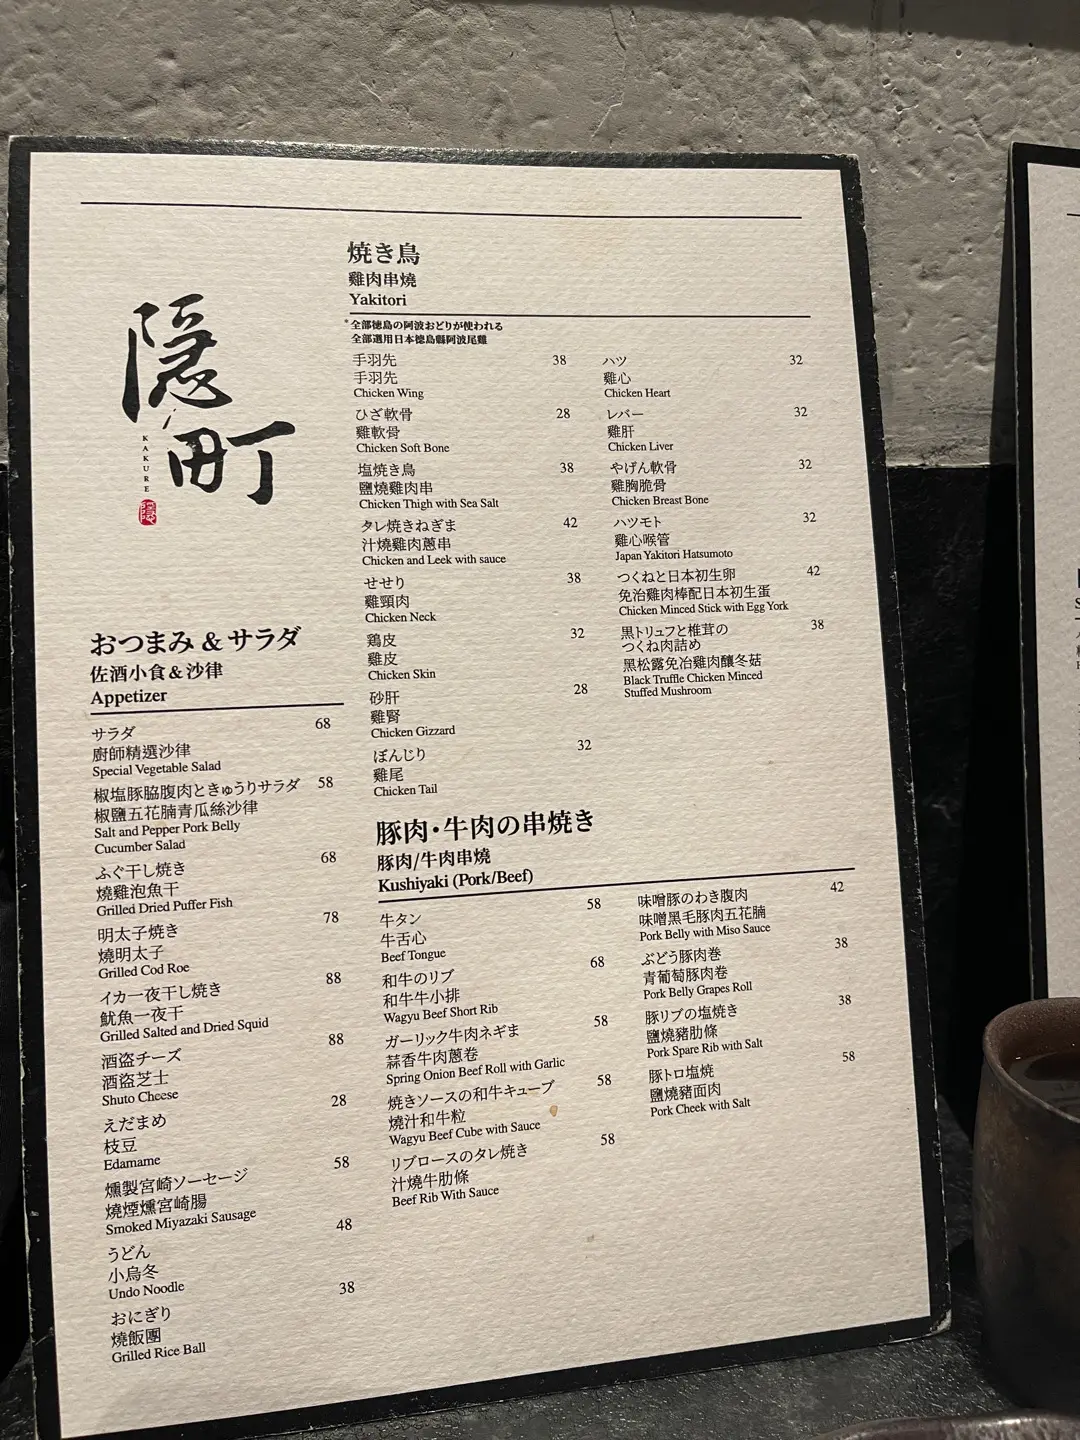 隠町
KAKURE
隠
焼き鳥
雞肉串燒
Yakitori
*全部徳島の阿波おどりが使われる
全部選用日本徳島縣阿波尾雞
手羽先 38
手羽先
Chicken Wing
ひざ軟骨 28
雞軟骨
Chicken Soft Bone
塩焼き鳥 38
鹽燒雞肉串
Chicken Thigh with Sea Salt
タレ焼きねぎま 42
汁燒雞肉蔥串
Chicken and Leek with sauce
せせり 38
雞頸肉
Chicken Neck
鶏皮 32
雞皮
Chicken Skin
砂肝 28
雞腎
Chicken Gizzard
ぼんじり 32
雞尾
Chicken Tail
ハツ 32
雞心
Chicken Heart
レバー 32
雞肝
Chicken Liver
やげん軟骨 32
雞胸脆骨
Chicken Breast Bone
ハツモト 32
雞心喉管
Japan Yakitori Hatsumoto
つくねと日本初生卵 42
免治雞肉棒配日本初生蛋
Chicken Minced Stick with Egg York
黒トリュフと椎茸の 38
つくね肉詰め
黑松露免治雞肉釀冬菇
Black Truffle Chicken Minced
Stuffed Mushroom
おつまみ & サラダ
佐酒小食&沙律
Appetizer
サラダ 68
廚師精選沙律
Special Vegetable Salad
椒塩豚脇腹肉ときゅうりサラダ 58
椒鹽五花腩青瓜絲沙律
Salt and Pepper Pork Belly
Cucumber Salad
ふぐ干し焼き 68
燒雞泡魚干
Grilled Dried Puffer Fish
明太子焼き 78
燒明太子
Grilled Cod Roe
イカ一夜干し焼き 88
魷魚一夜干
Grilled Salted and Dried Squid
酒盗チーズ 88
酒盗芝士
Shuto Cheese
えだまめ 28
枝豆
Edamame
燻製宮崎ソーセージ 58
燒煙燻宮崎腸
Smoked Miyazaki Sausage
うどん 48
小烏冬
Undo Noodle
おにぎり 38
燒飯團
Grilled Rice Ball
豚肉・牛肉の串焼き
豚肉/牛肉串燒
Kushiyaki (Pork/Beef)
牛タン 58
牛舌心
Beef Tongue
和牛のリブ 68
和牛牛小排
Wagyu Beef Short Rib
ガーリック牛肉ネギま 58
蒜香牛肉蔥卷
Spring Onion Beef Roll with Garlic
焼きソースの和牛キューブ 58
燒汁和牛粒
Wagyu Beef Cube with Sauce
リブロースのタレ焼き 58
汁燒牛肋條
Beef Rib With Sauce
味噌豚のわき腹肉 42
味噌黑毛豚肉五花腩
Pork Belly with Miso Sauce
ぶどう豚肉巻 38
青葡萄豚肉卷
Pork Belly Grapes Roll
豚リブの塩焼き 38
鹽燒豬肋條
Pork Spare Rib with Salt
豚トロ塩焼 58
鹽燒豬面肉
Pork Cheek with Salt